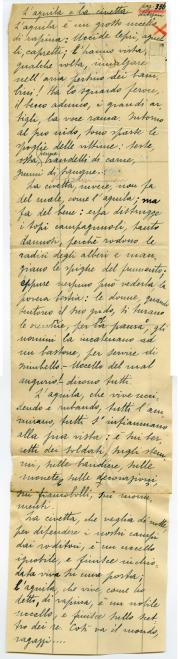 L'aquila e la civetta
L'aquila è un grosso uccello
di rapina: uccide lepri, agnel-
li, capretti; l'hanno vista,
qualche volta, innalzare
nell'aria perfino dei bam-
bini! Ha lo sguardo feroce,
il becco adunco, i grandi ar-
tigli, la voce rauca. Intorno
al suo nido, sono sparse le
spoglie delle vittime: teste,
ossa, brandelli di carne,
grumi di sangue.
La civetta, invece, non fa
del male, come l'aquila; ma
fa del bene: essa distrugge
i topi campagnuoli, tanto
dannosi, perché rodono le
radici degli alberi e man-
giano le spighe del frumento;
eppure nessuno può vederla la
povera bestia: le donne, quando
sentono il suo grido, si turano
le orecchie, per la paura, gli
uomini la incatenano ad
un bastone, per servire di
zimbello - Uccello del mal
augurio! - dicono tutti.
L'aquila, che vive ucci-
dendo e rubando, tutti l'am-
mirano, tutti s'infiammano
alla sua vista: è sui ber-
retti dei soldati, sugli stem-
mi, sulle bandiere, sulle
monete, sulle decorazioni,
sui francobolli, sui monu-
menti.
La civetta, che veglia di notte
per difendere i nostri campi
dai roditori, è un uccello
ignobile, e finisce inchio-
data viva su una porta;
l'aquila, che vive, come ho
detto, di rapina, è un nobile
uccello, e finisce sullo scet-
tro dei re. Così va il mondo,
ragazzi....